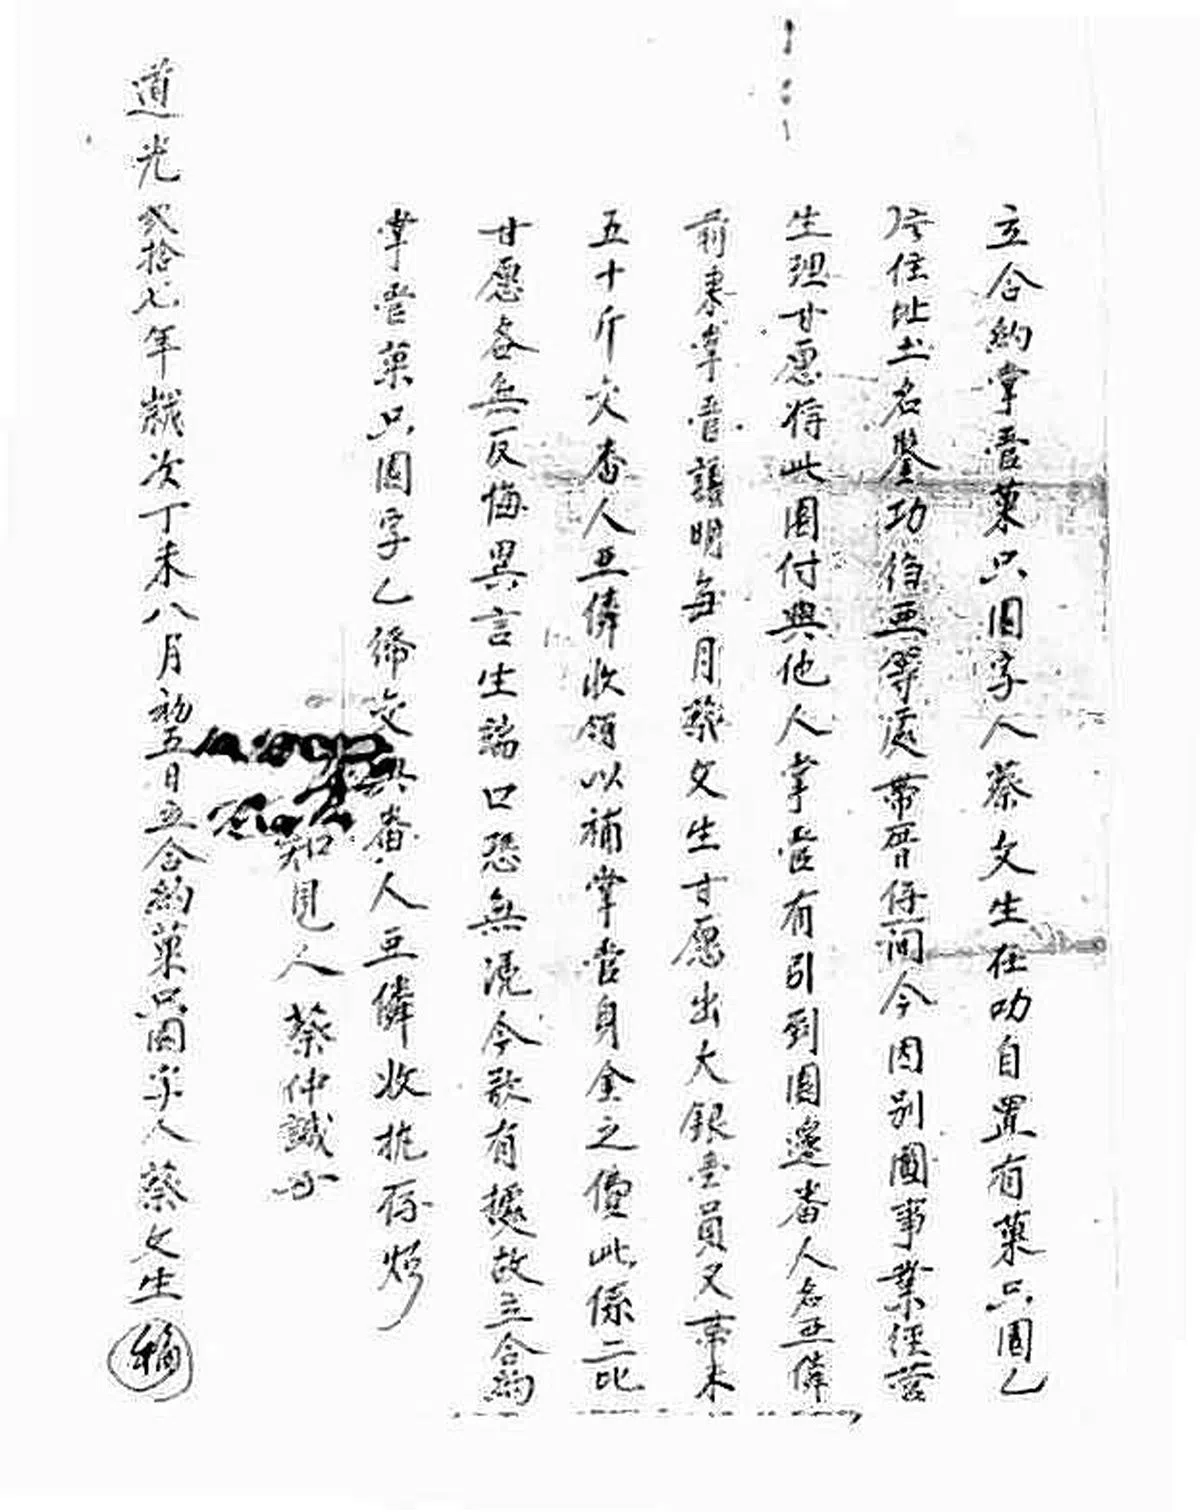 立合約掌管菓只園字人蔡文生在叻自置有菓只園乙
住址土名鑿功伯画等處帶厝仔間今因別圖事業經营
生理甘愿将此園付與他人掌管有引到園邊番人名亚
前來掌管議明每月蔡文生甘愿出大銀壹員又帶木
五十斤交番人亚收領以補掌管身金之價此係二比
甘愿各無反悔異言生端口恐無憑今欲有據故立合約
掌管菓只園字乙番人亚收执存炤
知見人蔡仲誠
道光弍拾七年歲次丁未八月初五日立合約菓只園字人蔡文生